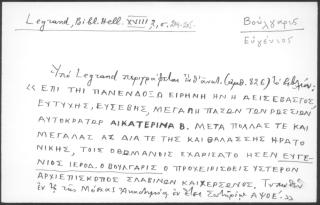 Legrand, Bibl. Hell. XVIII, 2, σ. 24-25.
Βούλγαρις
Εὐγένιος
Ὑπὸ Legrand περιγράφεται (ἀριθ. 826) τὸ βιβλίον:
« ΕΠΙ ΤΗ ΠΑΝΕΝΔΟΞΩ ΕΙΡΗΝΗ ΗΝ Η ΑΕΙΣΕΒΑΣΤΟΣ
ΕΥΤΥΧΗΣ, ΕΥΣΕΒΗΣ, ΜΕΓΑΛΗ ΠΑΣΩΝ ΤΩΝ ΡΩΣΣΙΩΝ
ΑΥΤΟΚΡΑΤΩΡ ΑΙΚΑΤΕΡΙΝΑ Β. ΜΕΤΑ ΠΟΛΛΑΣ ΤΕ ΚΑΙ
ΜΕΓΑΛΑΣ ΑΣ ΔΙΑ ΤΕ ΓΗΣ ΚΑΙ ΘΑΛΑΣΣΗΣ ΗΡΑΤΟ
ΝΙΚΗΣ, ΤΟΙΣ ΟΘΩΜΑΝΟΙΣ ΕΧΑΡΙΣΑΤΟ ΗΣΕΝ ΕΥΓΕ-
ΝΙΟΣ ΙΕΡΟΔ. Ο ΒΟΥΛΓΑΡΙΣ Ο ΠΡΟΧΕΙΡΙΣΘΕΙΣ ΥΣΤΕΡΟΝ
ΑΡΧΙΕΠΙΣΚΟΠΟΣ ΣΛΑΒΙΝΩΝ ΚΑΙ ΧΕΡΣΩΝΟΣ, Τυπωθὲν
ἐν τῇ τῶν ἐν ἔτει Σωτηρίῳ ΑΨΟΕ΄. »